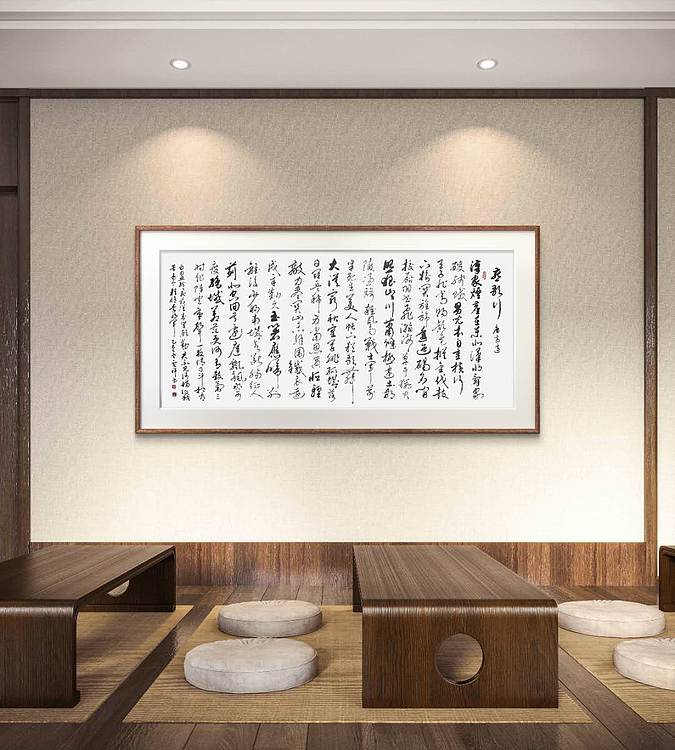 燕歌行 唐高適
漢家煙塵在東北漢將辭家
破殘賊男兒本自重橫行
天子非常賜顏色摐金伐鼓
下榆關旌旆逶迤碣石間
校尉羽書飛瀚海單于獵火
照狼山山川蕭條極邊土胡騎
憑陵雜風雨戰士軍前
半死生美人帳下猶歌舞
大漠窮秋塞草腓孤城落
日鬥兵稀身當恩遇恒輕
敵力盡關山未解圍鐵衣遠
戍辛勤久玉箸應啼別
離後少婦城南欲斷腸征人
薊北空回首邊庭飄颻那可
度絕域蒼茫更何有殺氣三
時作陣雲寒聲一夜傳刁斗相看
白刃血紛紛死節從來豈顧勳君不見沙場征戰
苦至今猶憶李將軍